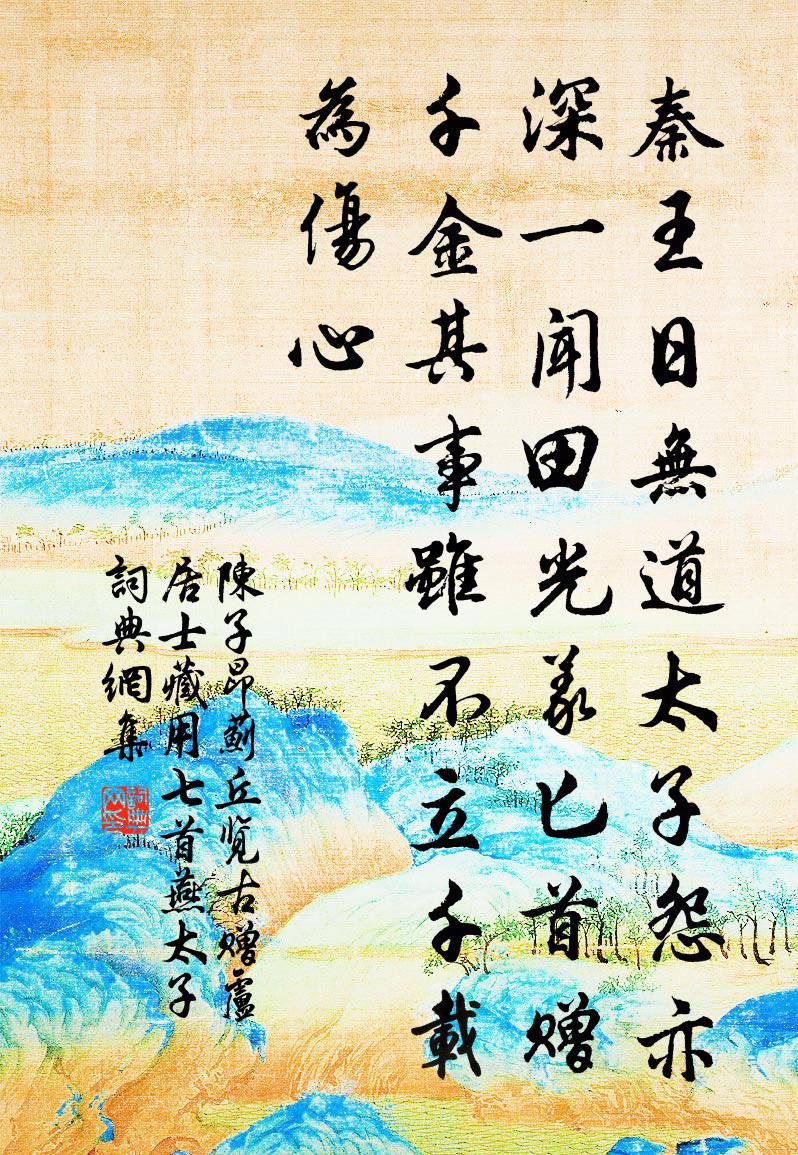 秦王日無道太子怨亦
深一聞田光義匕首赠
千金其事雖不立千載
為傷心
陳子昂薊丘覽古赠盧
居士藏用七首燕太子
詞典網集